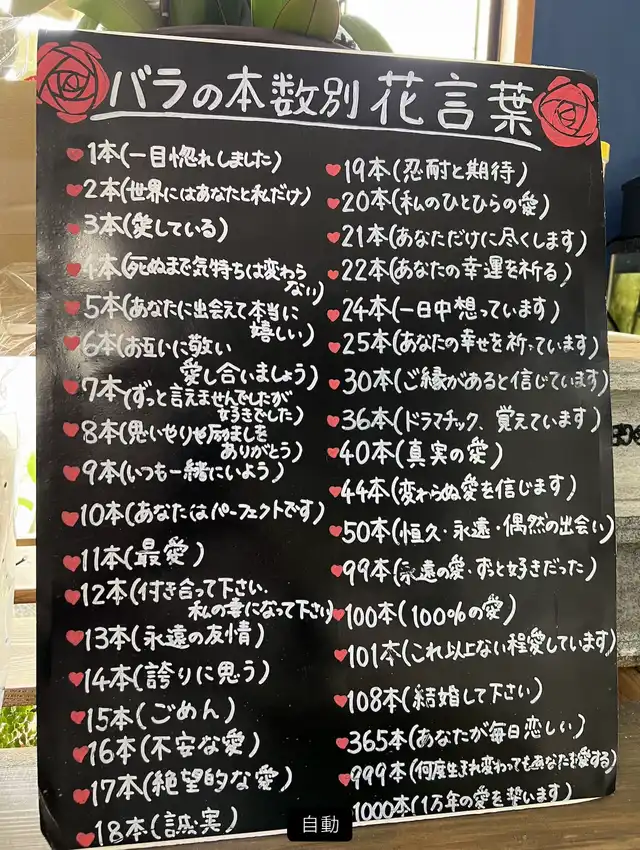 バラの本数別 花言葉
1本(一目惚れしました)
2本(世界にはあなたと私だけ)
3本(愛している)
4本(死ぬまで気持ちは変わら
ない)
5本(あなたに出会えて本当に
嬉しい)
6本(お互いに敬い
愛し合いましょう)
7本(ずっと言えませんでしたが
好きでした)
8本(思いやりや励ましを
ありがとう)
9本(いつも一緒にいよう)
10本(あなたはパーフェクトです)
11本(最愛)
12本(付き合って下さい.
私の妻になって下さい)
13本(永遠の友情)
14本(誇りに思う)
15本(ごめん)
16本(不安な愛)
17本(絶望的な愛)
18本(誠実)
19本(忍耐と期待)
20本(私のひとひらの愛)
21本(あなただけに尽くします)
22本(あなたの幸運を祈る)
24本(一日中想っています)
25本(あなたの幸せを祈っています)
30本(ご縁があると信じています)
36本(ドラマチック、覚えています)
40本(真実の愛)
44本(変わらぬ愛を信じます)
50本(恒久・永遠・偶然の出会い)
99本(永遠の愛・ずっと好きだった)
100本(100%の愛)
101本(これ以上ない程愛しています)
108本(結婚して下さい)
365本(あなたが毎日恋しい)
999本(何度生まれ変わってもあなたを愛する)
1000本(1万年の愛を誓います)
自動